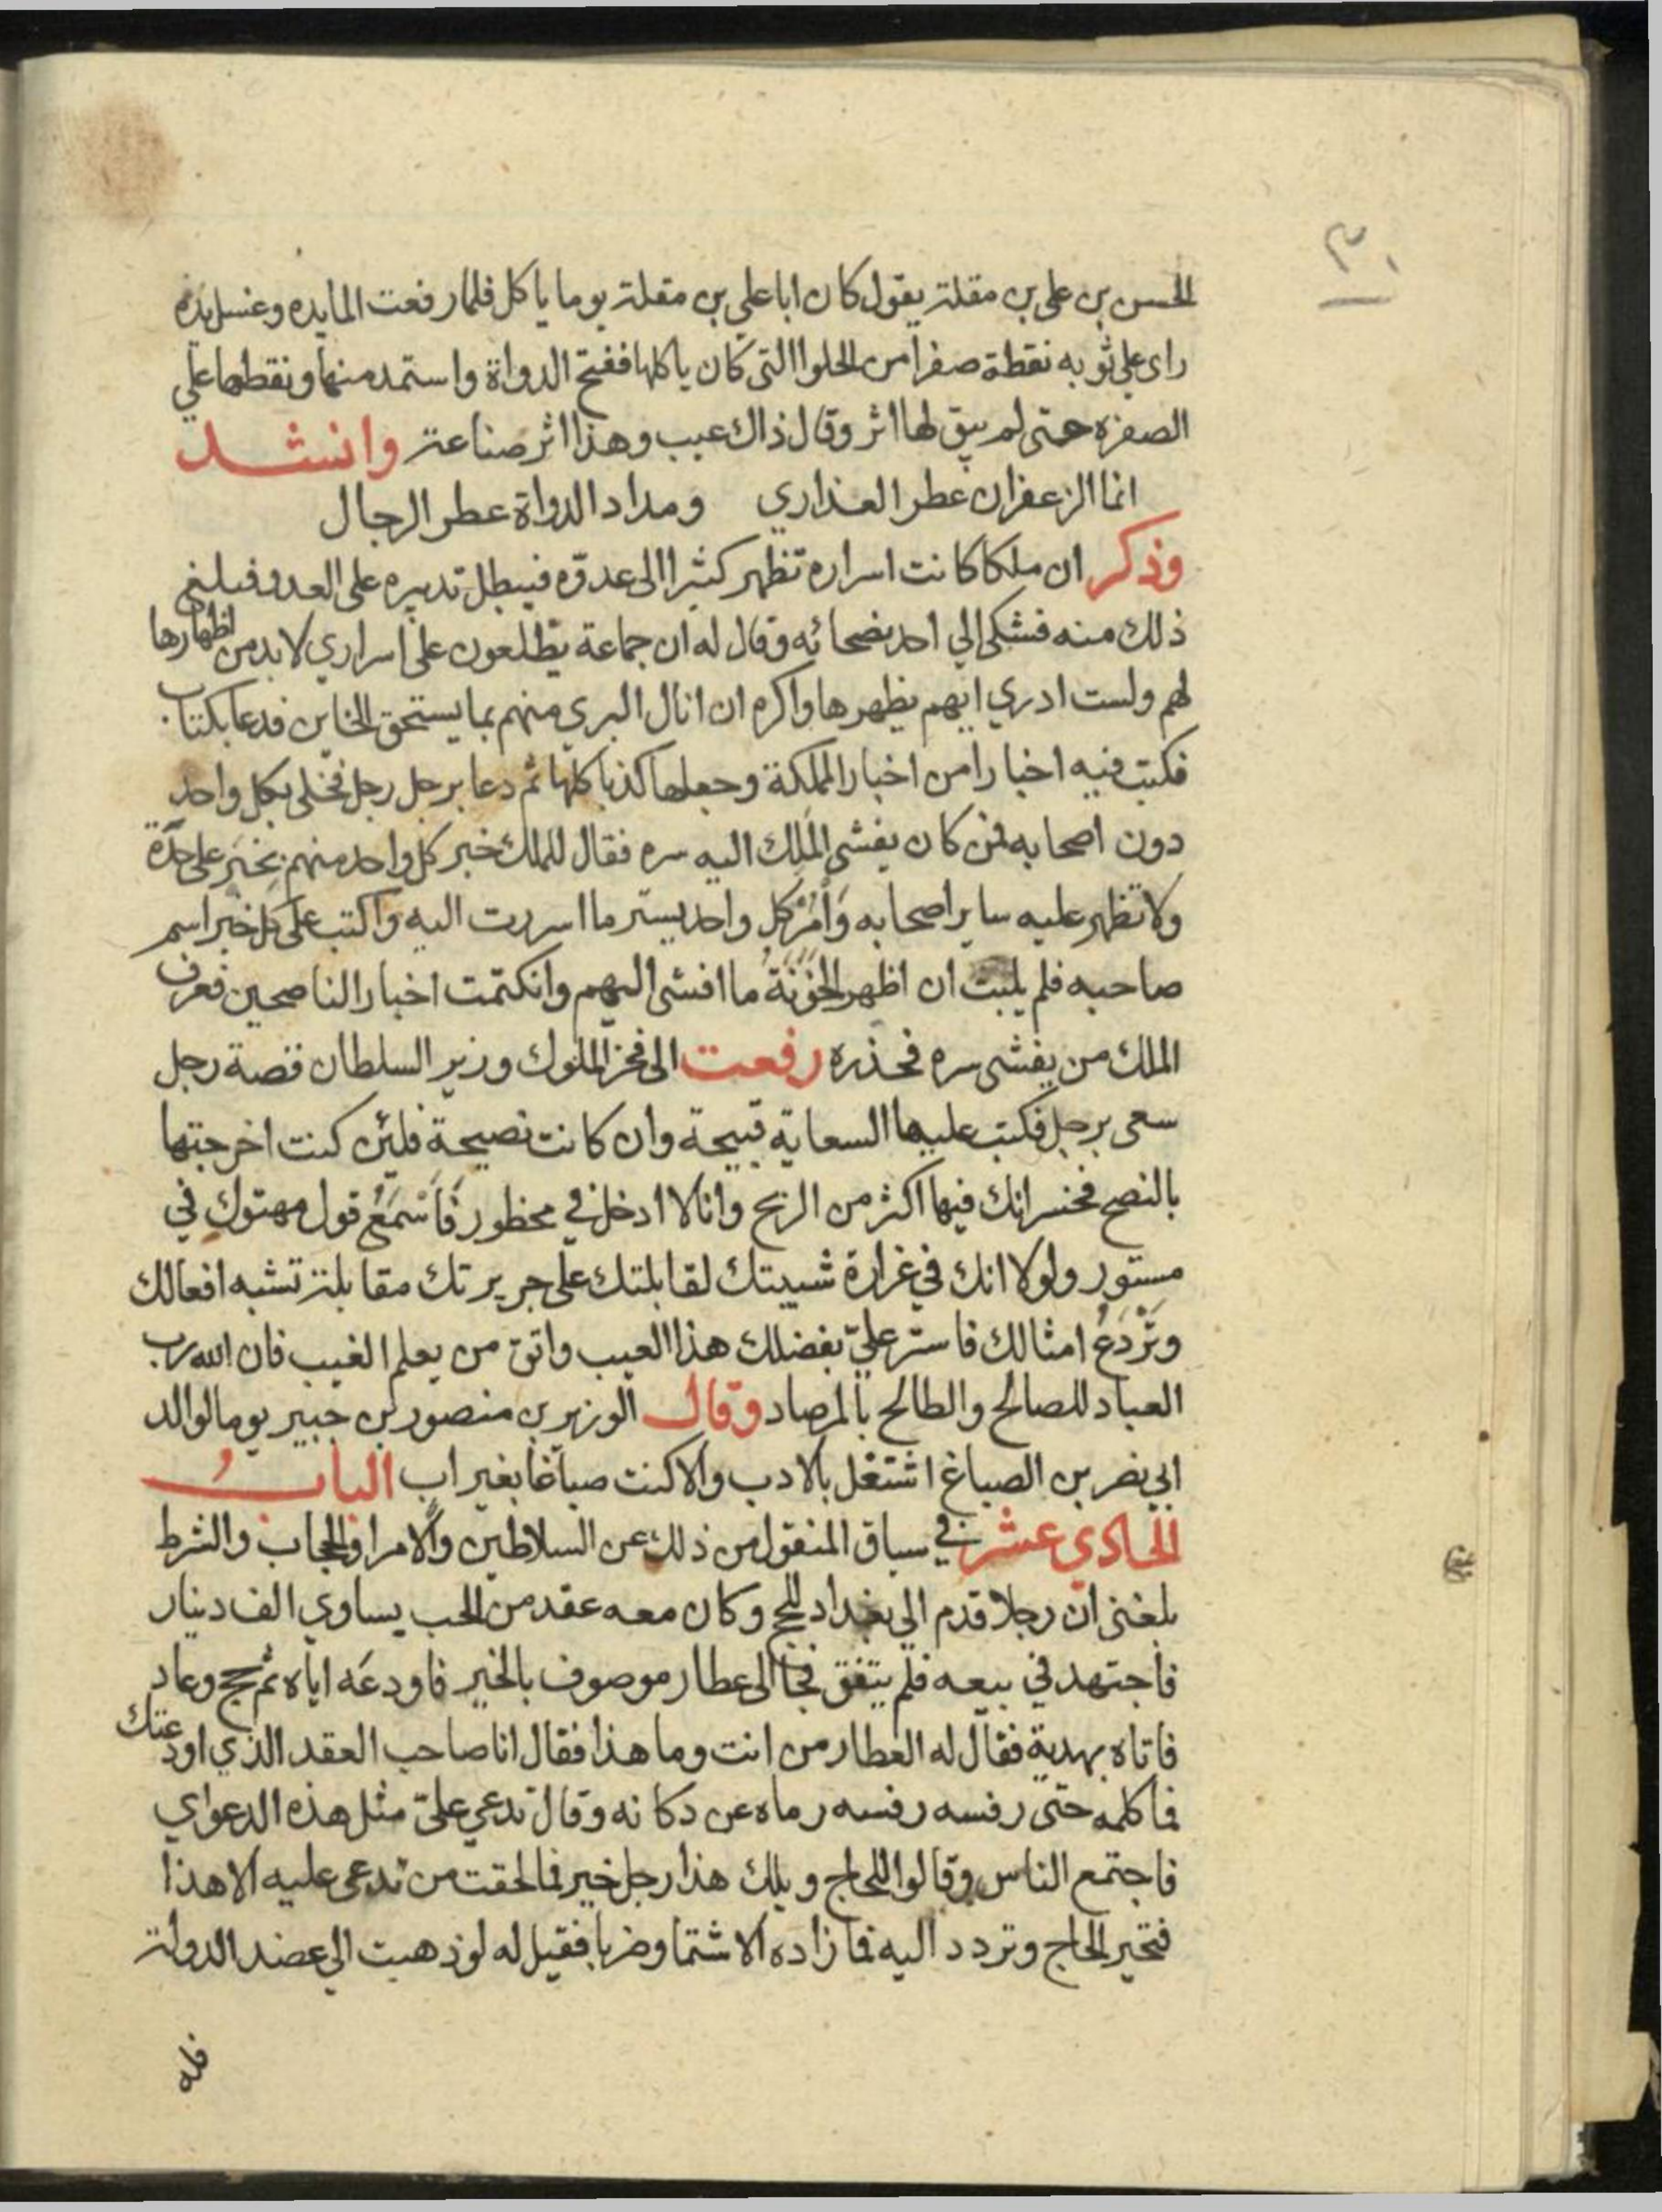 ٣٠
الحسن بن على بن مقلة يقول كان ابا علي بن مقلة يوما ياكل فلما رفعت المايده وغسل يده
راى على ثوبه نقطة صفرا من الحلوا التى كان ياكلها ففتح الدواة واستمد منها ونقطها على
الصفره حتى لم يبق لها اثر وقال ذاك عيب وهذا اثر صناعة وانشد
انما الزعفران عطر العذاري ومداد الدواة عطر الرجال
وذكر ان ملكا كانت اسراره تظهر كثيرا الى عدوّه فيبطل تدبيره على العدو فبلغ
ذلك منه فشكى الي احد نصحائه وقال له ان جماعة يطلعون على اسراري لابد من اظهارها
لهم ولست ادري ايهم يظهرها واكره ان انال البري منهم بما يستحق الخاين فدعا بكتاب
فكتب فيه اخبارا من اخبار المملكة وجعلها كذبا كلها ثم دعا برجل رجل فخلى بكل واحد
دون اصحابه فمن كان يفشى الملك اليه سره فقال للملك خبر كل واحد منهم بخبر على حدّة
ولا تظهر عليه ساير اصحابه وَأْمُرْ كل واحد بستر ما اسررت اليه واكتب على كل خبر اسم
صاحبه فلم يلبث ان اظهر الخَوَنَةُ ما افشى اليهم وانكتمت اخبار الناصحين فعرف
الملك من يفشى سره فحذره رفعت الى فخر الملوك وزير السلطان قصة رجل
سعى برجل فكتب عليها السعاية قبيحة وان كانت نصيحة فلئن كنت اخرجتها
بالنصح فخسرانك فيها اكثر من الربح وانا لا ادخل في محظور فَأَسْمَعُ قول مهتوك في
مستور ولولا انك في غرارة شيبتك لقابلتك على جريرتك مقابلة تشبه افعالك
وتَرْدَعُ امثالك فاستر عليّ بفضلك هذا العيب واتق من يعلم الغيب فان الله رب
العباد للصالح والطالح بالمرصاد وقال الوزير بن منصور بن جبير يوما لوالد
ابي نصر بن الصباغ اشتغل بالادب والا كنت صباغا بغير اب البابُ
الحادي عشر في سياق المنقول من ذلك عن السلاطين والامرا والحجاب والشرط
بلغنى ان رجلا قدم الي بغداد للحج وكان معه عقد من الحب يساوي الف دينار
فاجتهد في بيعه فلم يتفق فجا الى عطار موصوف بالخير فاودعه اياه ثم حج وعاد
فاتاه بهدية فقال له العطار من انت وما هذا فقال انا صاحب العقد الذي اودعتك
فما كلمه حتى رفسه رفسه رماه عن دكانه وقال تدعي عليّ مثل هذه الدعواي
فاجتمع الناس وقالوا للحاج ويلك هذا رجل خير فما لحقت من تدعى عليه الا هذا
فتحير الحاج وتردد اليه فما زاده الا شتما وضربا فقيل له لو ذهبت الي عضد الدولة
فله